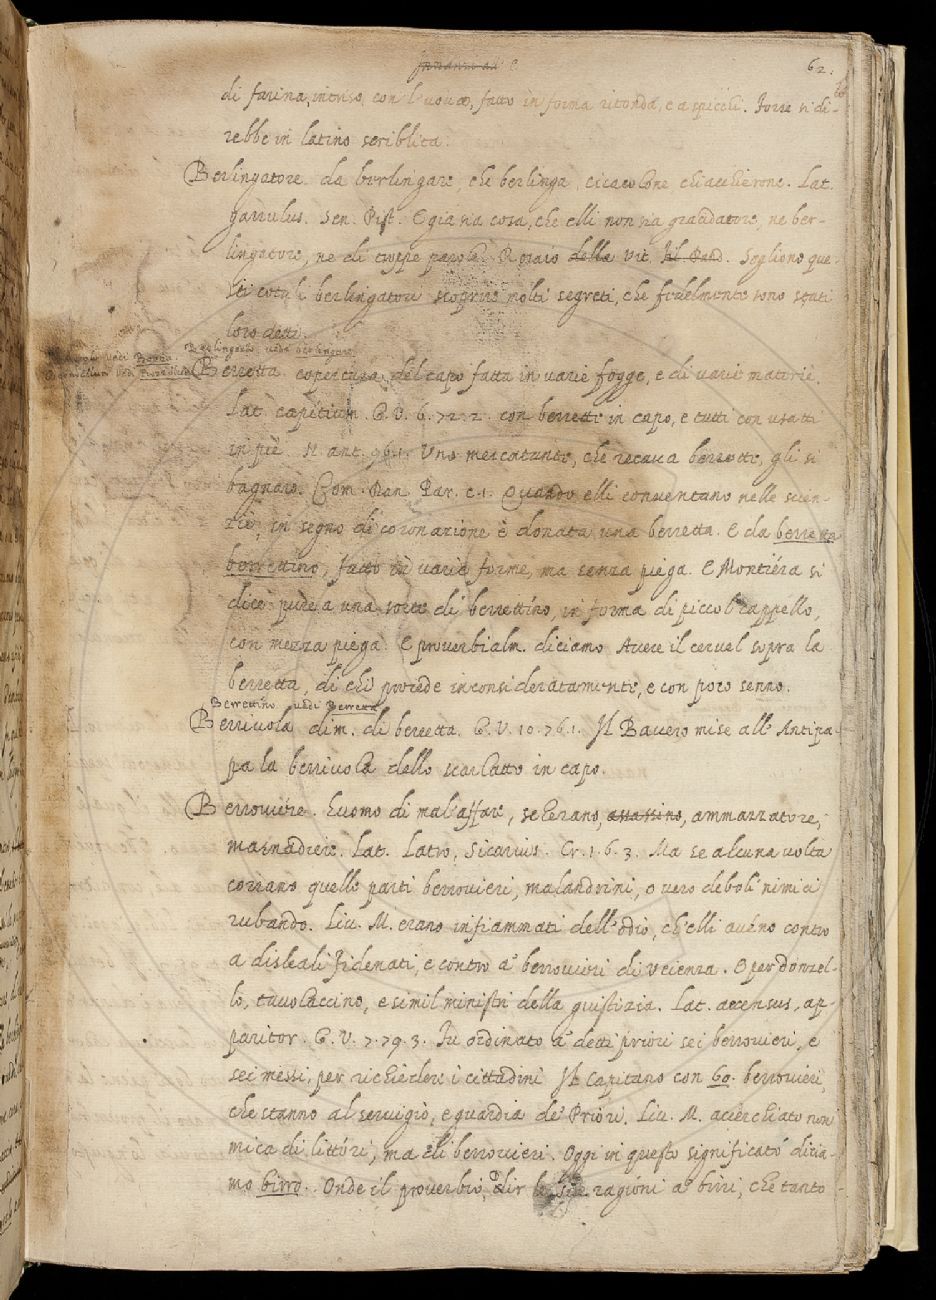 innanzi ad E
62.
di farina, intriso, con l'uova, fatto in forma ritonda, e a spicchi. Forse si di-
rebbe in latino scriblita.
Berlingatore. da berlingare, che berlinga, cicalone chiacchierone. Lat.
garrulus. Sen. Pist. E già sia cosa, che elli non sia gradatore, ne ber-
lingatore, ne di troppe parole. della vit. Sogliono que-
sti cotali berlingatori scoprire molti segreti, che fidelmente sono stati
loro detti.
vedi Berlingozzo vedi berlingare
vedi
Berretta. copertura del capo fatta in varie fogge, e di varie materie.
Lat. capitium. G. V. 6. 72. 2. con berrette in capo, e tutti con usatti
in piè. N. ant. 96. 1. Uno mercatante, che recava berrette, gli si
bagnaro. Com. Dan. Par. c. 1. Quando elli conventano nelle scien-
zie, in segno di coronazione è donata una berretta. E da berretta
berrettino, fatto in varie forme, ma senza piega. E Montiéra si
dice pure a una sorte di berrettino, in forma di piccol cappello,
con mezza piega. E proverbialm. diciamo Avere il cervel sopra la
berretta, di chi procede inconsideratamente, e con poco senno.
Berrettino vedi Berretta
Berrivola dim. di berretta. G. V. 10. 76. 1. Il Bavero mise all' Antipa-
pa la berrivola dello scarlatto in capo.
Berroviére. Huomo di mal'affare, scherano, assassino, ammazzatore,
masnadiere. Lat. Latro, Sicarius. Cr. 1. 6. 3. Ma se alcuna volta
corrano quelle parti berrovieri, malandrini, o vero deboli nimici
rubando. Liv. M. erano infiammati dell'odio, ch'elli aveno contro
a disleali Fidenati, e contro a' berrovieri di Veienza. O per donzel-
lo, tavolaccino, e simil ministri della giustizia. Lat. accensus, ap-
paritor. G. V. 7. 79. 3. Fu ordinato a' detti priori sei berrovieri, e
sei messi, per richièdere i cittadini Il Capitano con 60. berrovieri,
che stanno al servigio, e guardia de' Priori. Liv. M. accerchiato non
mica di littóri, ma di berrovieri. Oggi in questo significato dicia-
mo birro. Onde il proverbio, dir le sue ragioni a' birri, che tanto